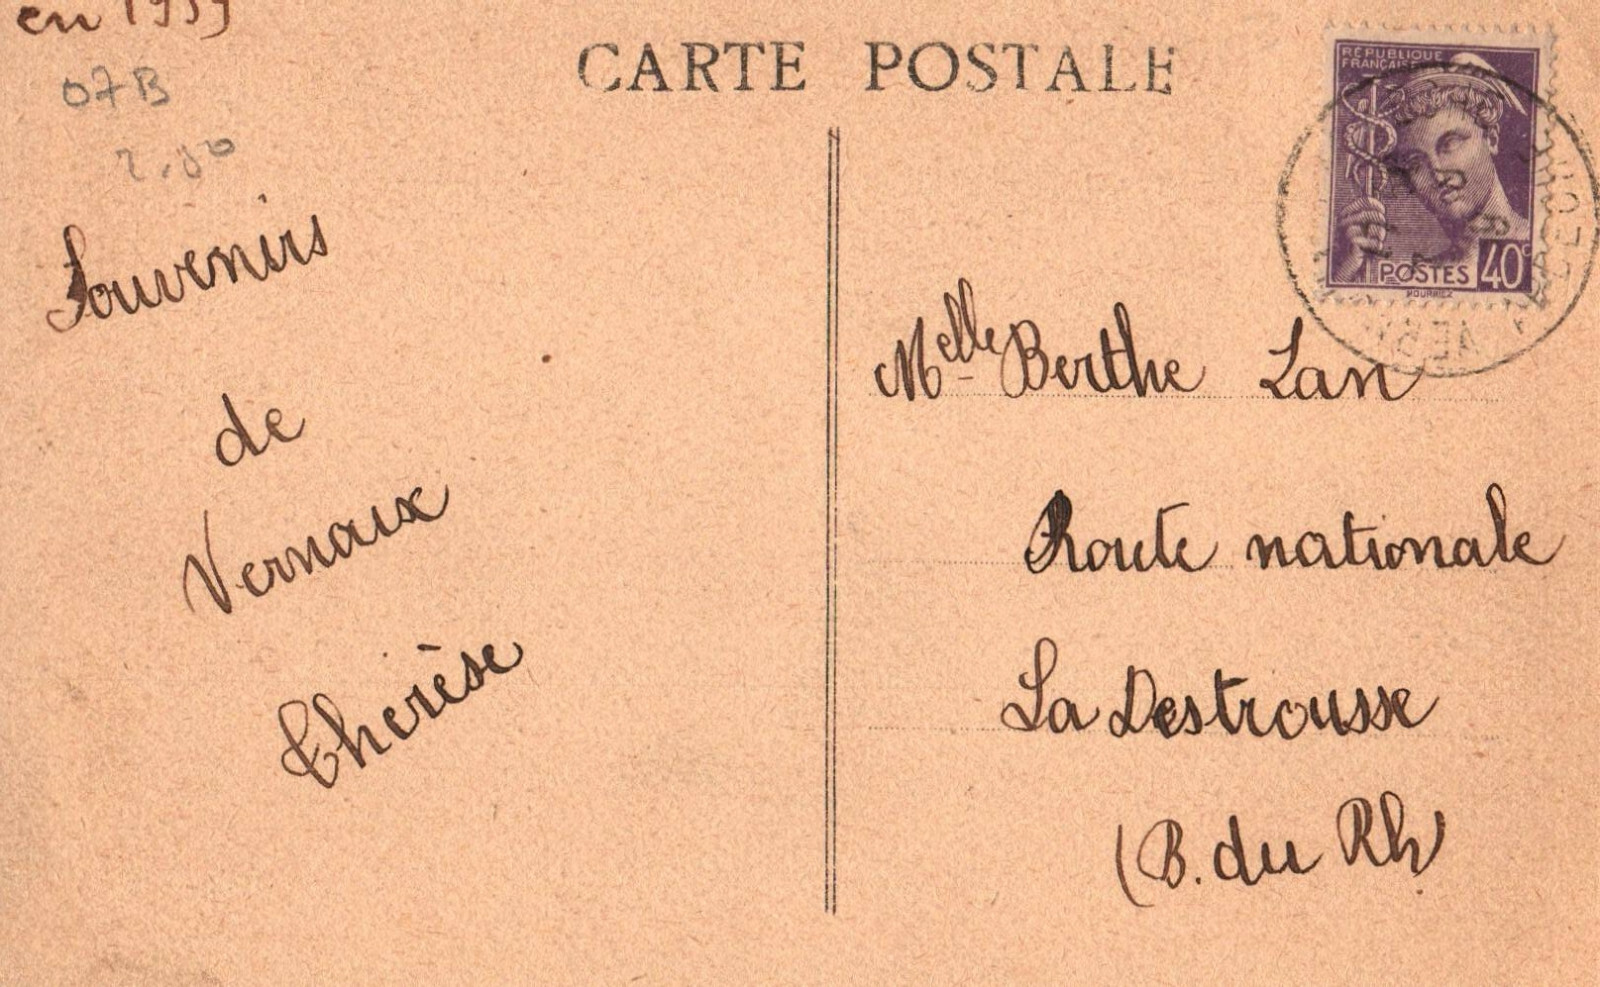 en 1939
07B
CARTE POSTALE
RÉPUBLIQUE
FRANÇAISE
POSTES 40c
Souvenirs
de
Vernoux
Therèse
Melle Berthe Lan
Route nationale
La Destrousse
(B. du Rh)